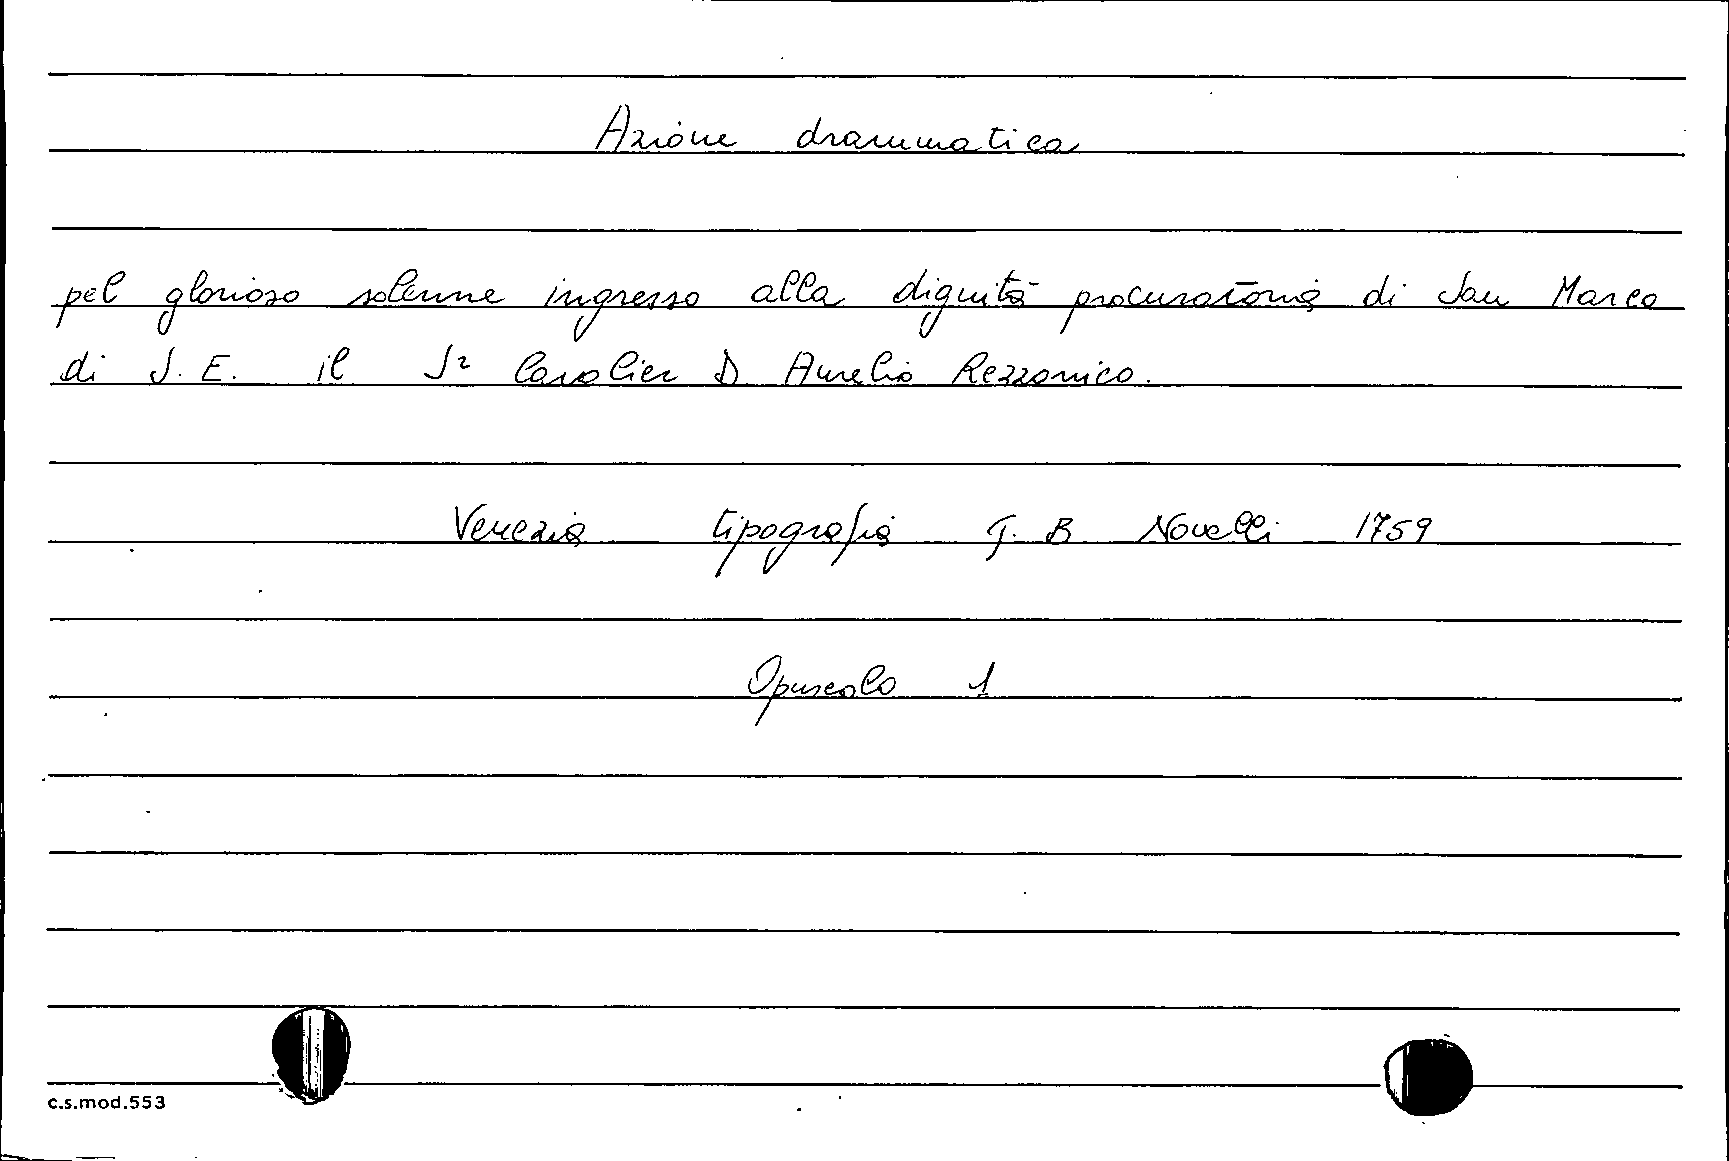 Azione drammatica
pel glorioso solenne ingresso alla dignità procuratoria di San Marco
di S. E. il S^r Cavalier D Aurelio Rezzonico.
Venezia tipografia G. B Novelli 1759
Opuscolo 1
c.s.mod.553